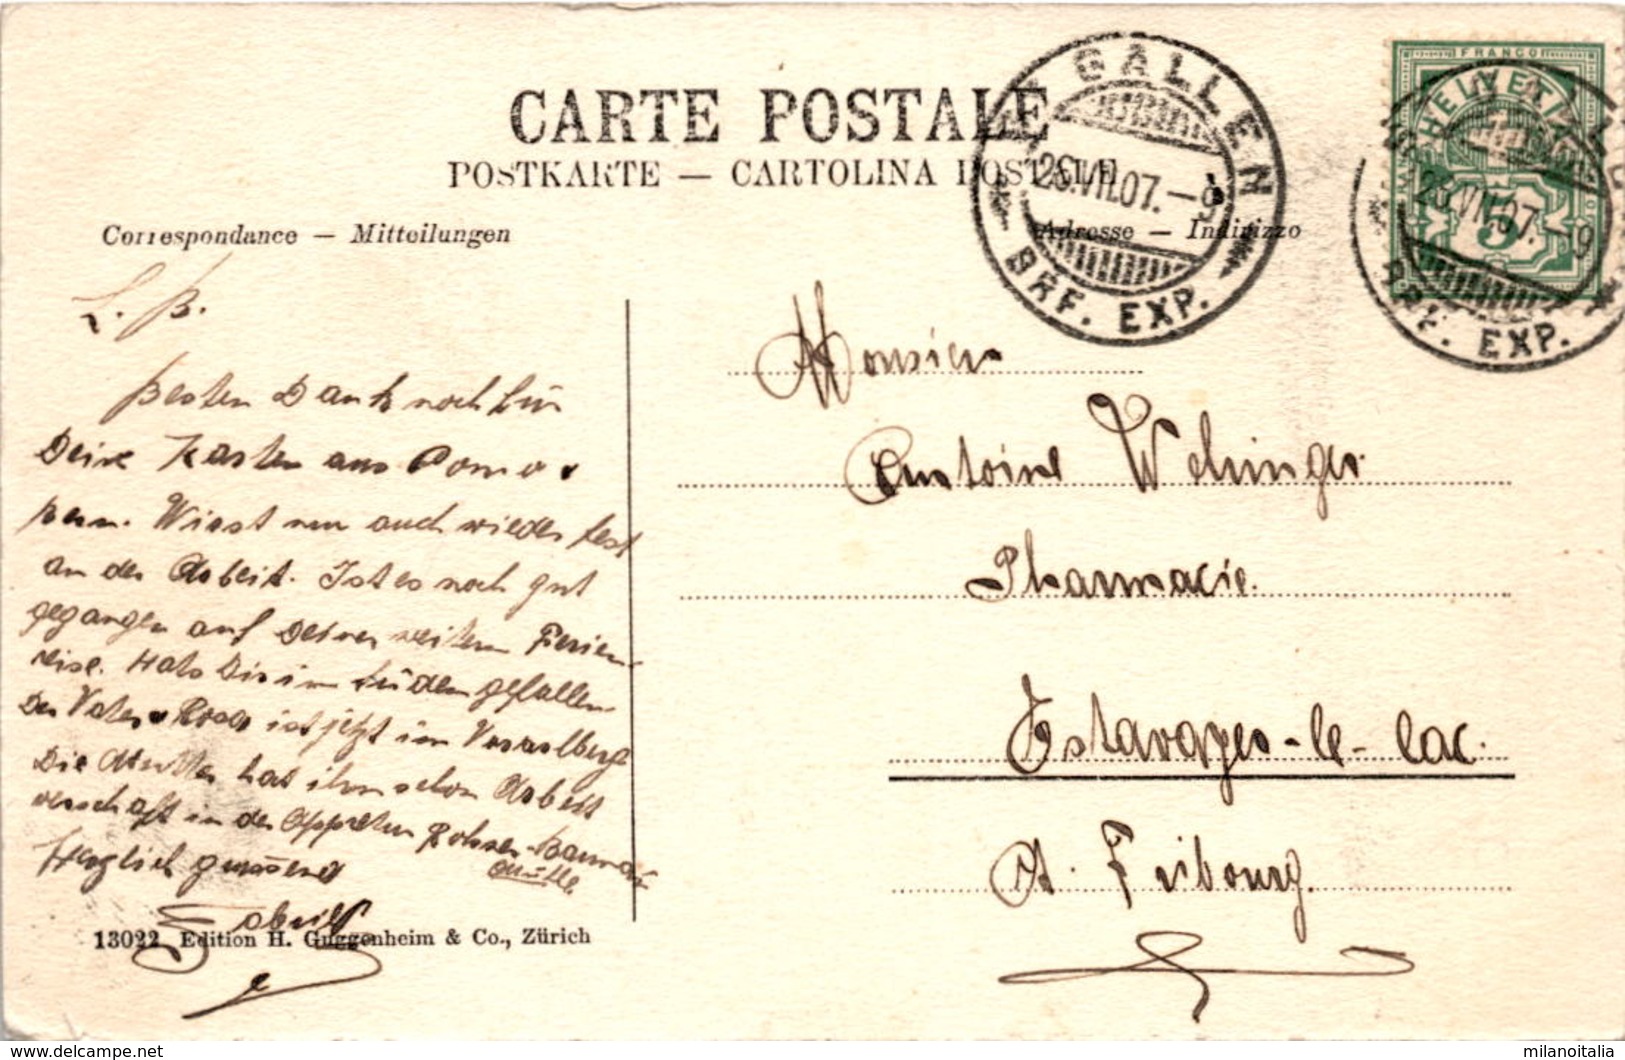 CARTE POSTALE
POSTKARTE — CARTOLINA POSTALE
Correspondance — Mitteilungen
Adresse — Indirizzo
ST. GALLEN
26.VII.07.–9
BRF. EXP.
FRANCO
HELVETIA
5
GALLEN
26.VII.07.–9
BRF. EXP.
L. B.
Besten Dank noch für
Deine Karten aus
Wirst nun auch wieder fest
an der Arbeit. Ist es noch gut
gegangen auf Deiner weitern Ferien-
reise. Hats Dir im Süden gefallen
Der Vater u Rosa ist jetzt im Vorarlberg
Die Mutter hat ihm schon Arbeit
verschafft in der Appretur Rohner-
Herzlich grüssend
Monsieur
Antoine Wehinger
Pharmacie.
Estavayer-le-lac.
Ct. Fribourg.
13022 Edition H. Guggenheim & Co., Zürich
https://www.delcampe.net
milanoitalia